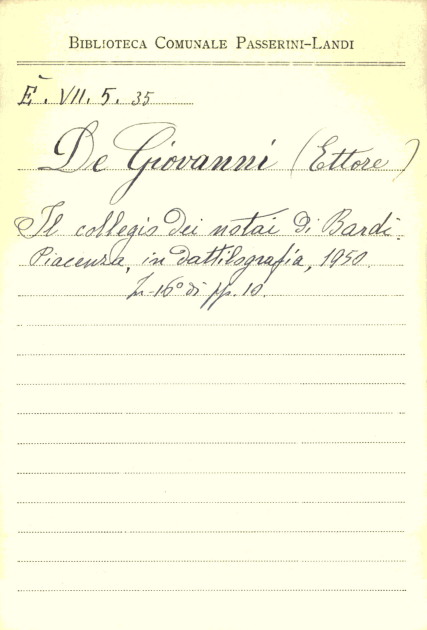 BIBLIOTECA COMUNALE PASSERINI-LANDI
E. VII. 5. 35
De Giovanni (Ettore)
Il collegio dei notai di Bardi.
Piacenza, in dattilografia, 1950.
In-16° di pp. 10.